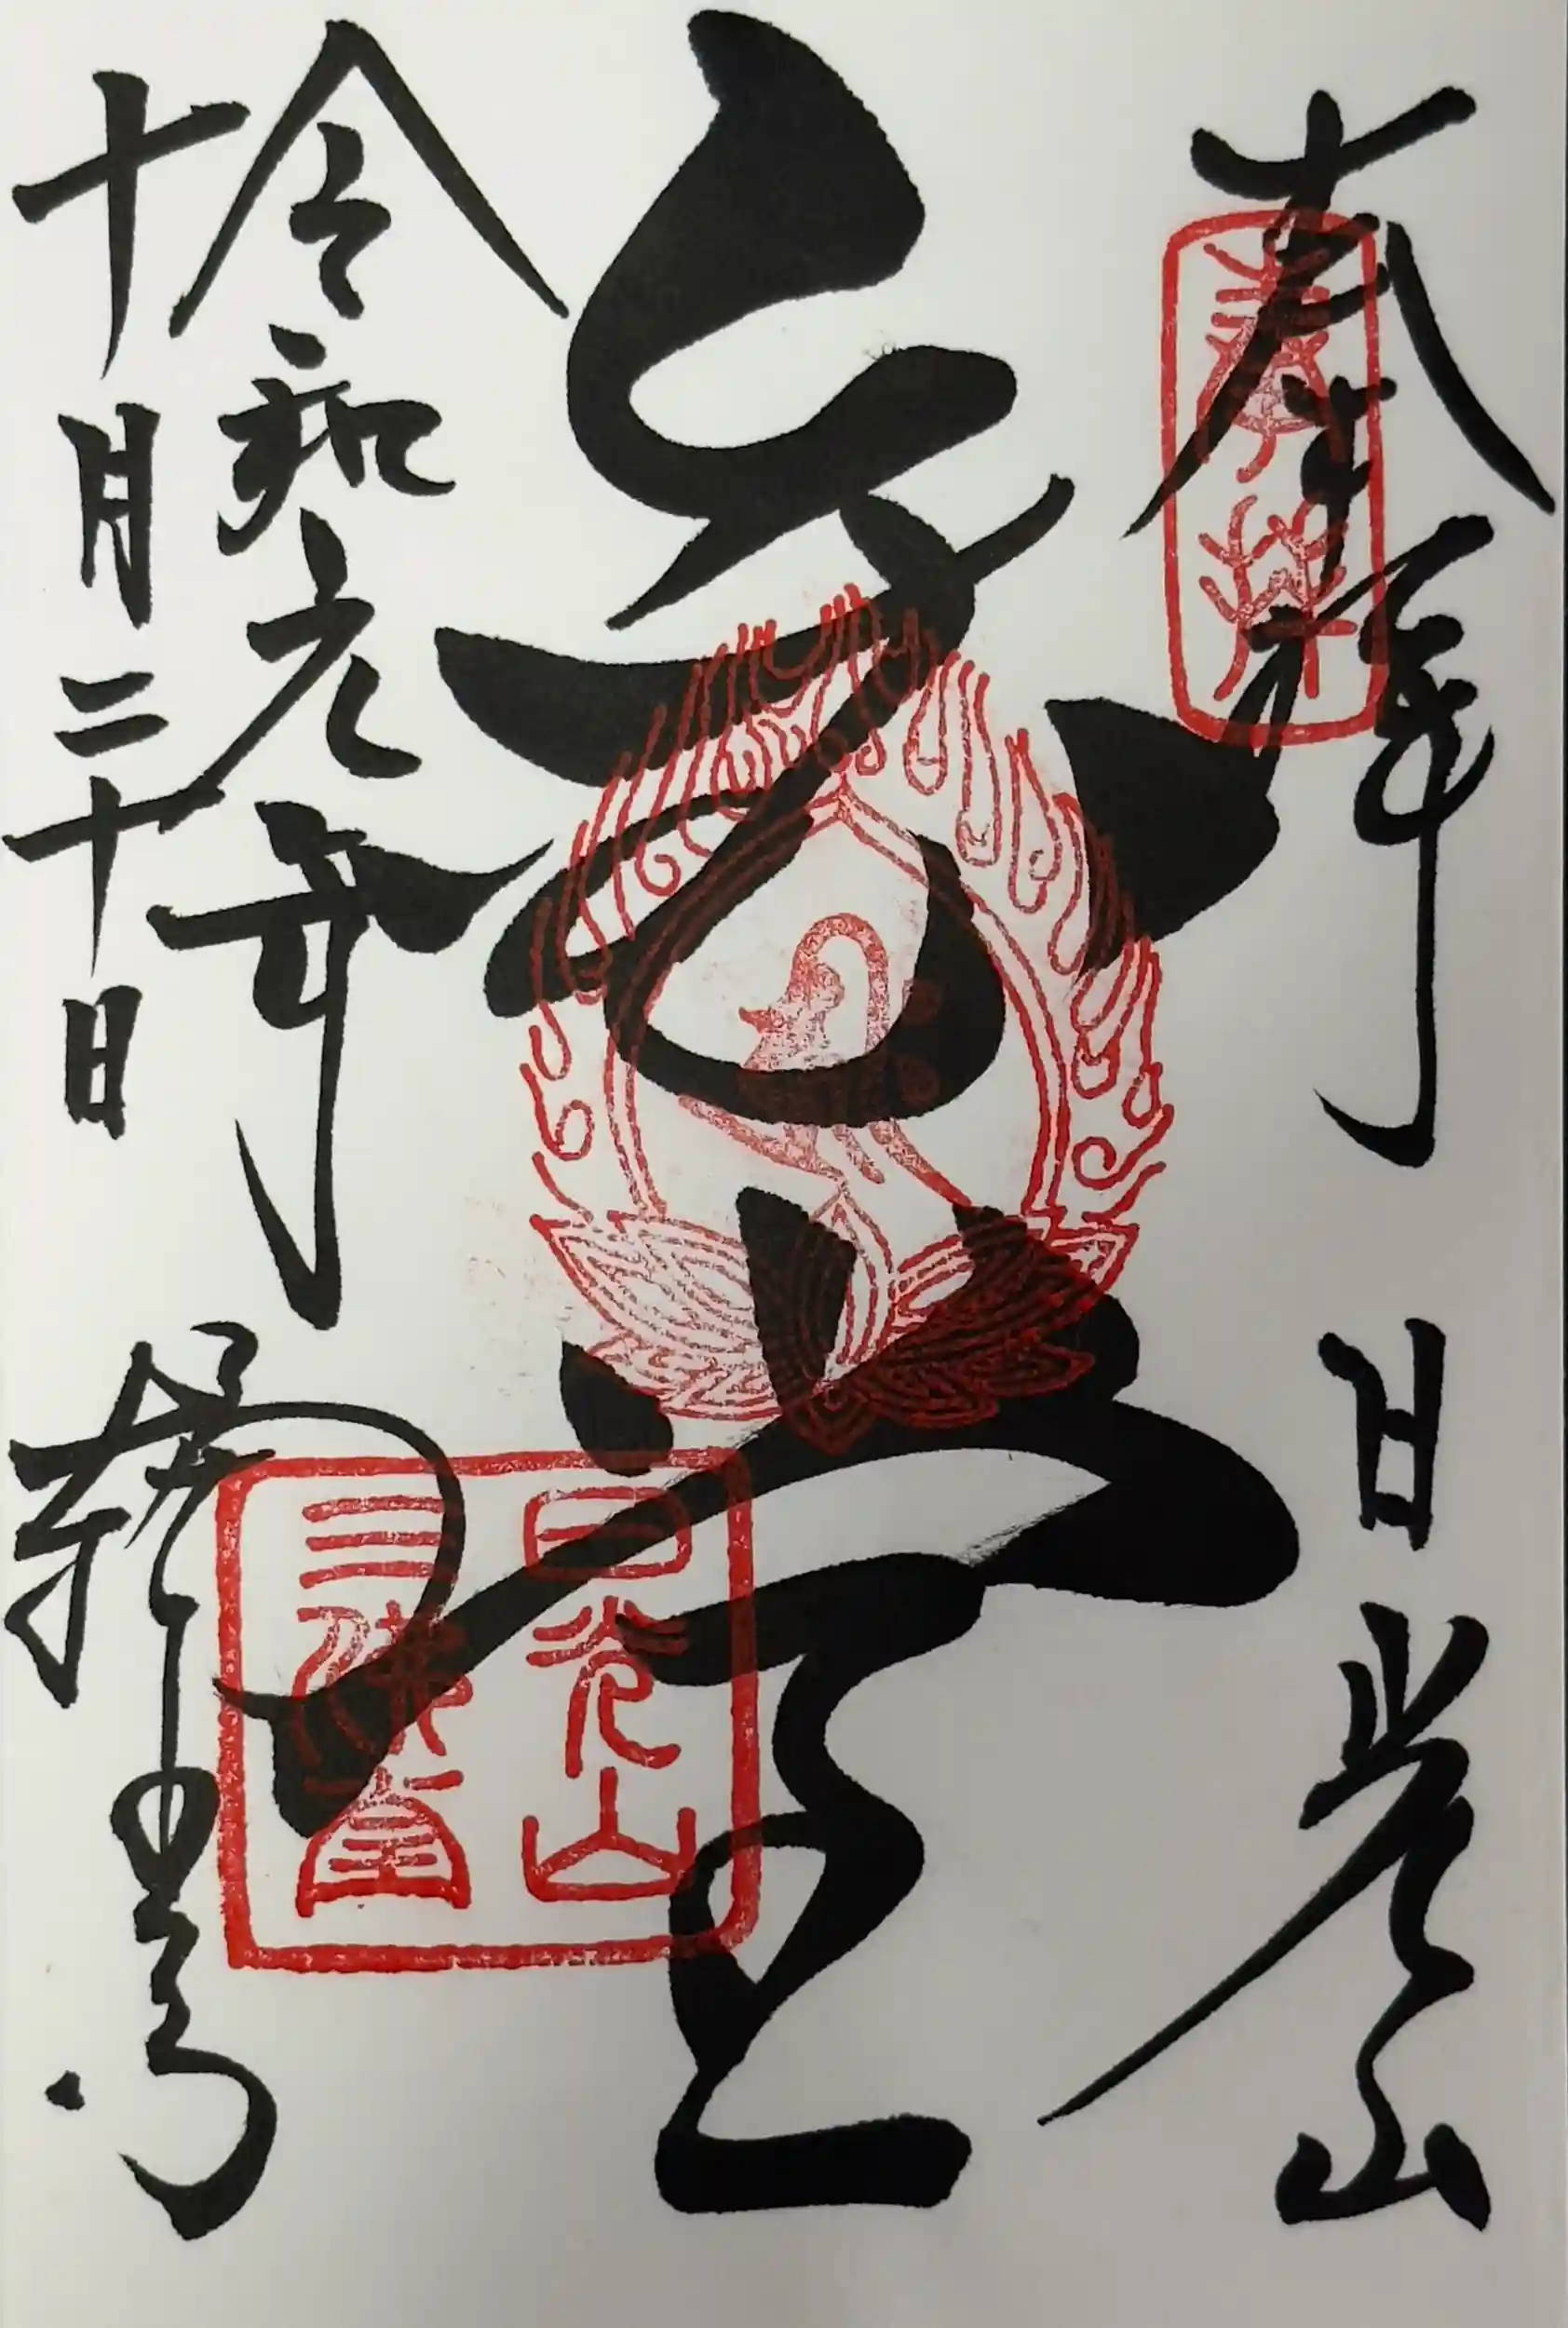 奉拝 日光山
奉拝
堂
日光山
三佛堂
令和元年
十月二十日
輪王寺